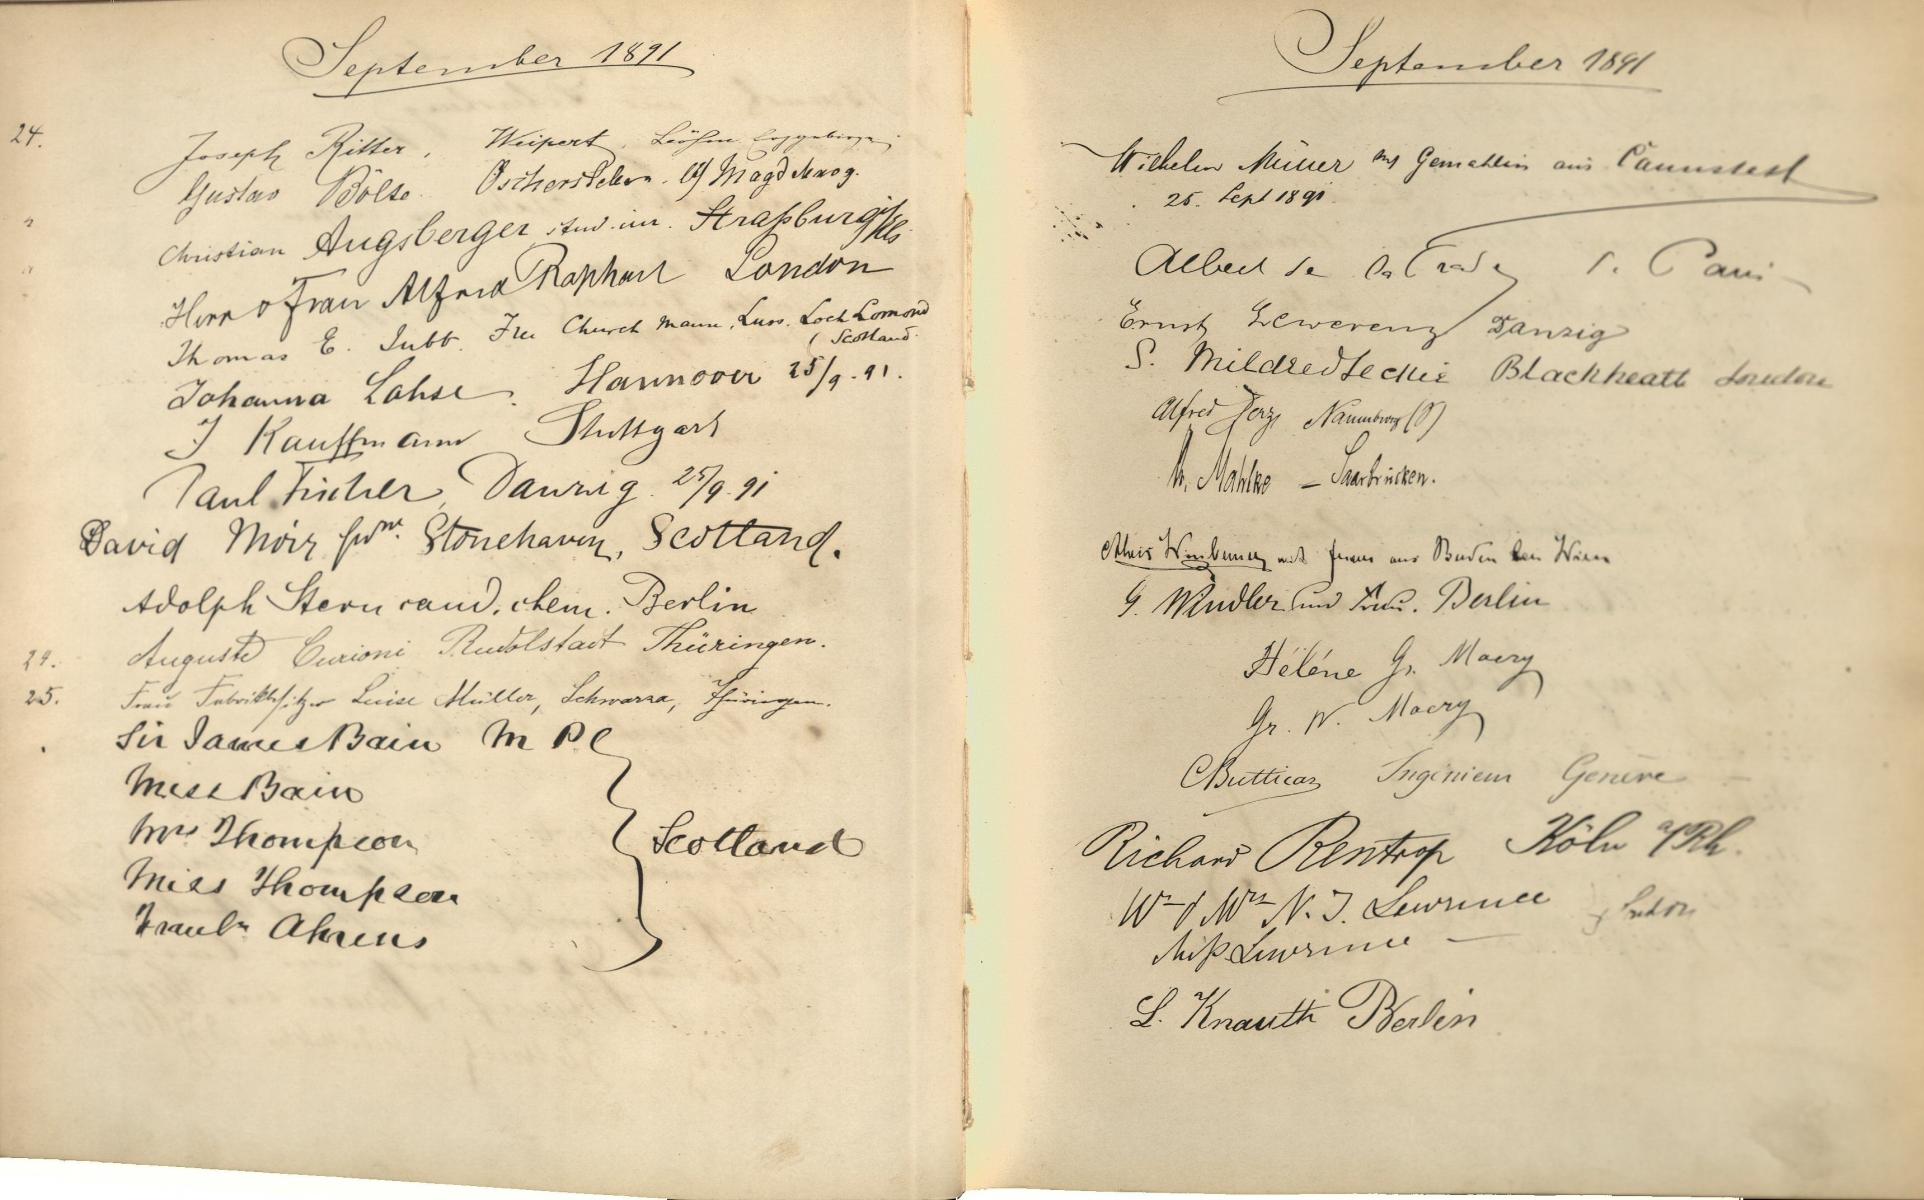 September 1891
24. Joseph Ritter, Weipert,
Gustav Bölte. Oschersleben.
Christian Augsberger stud. iur. Straßburg i/Els.
Herr & Frau Alfred Raphael London
Thomas E. Jubb. Free Church Manse, Luss. Loch Lomond
Scotland.
Johanna Lohse. Hannover 25/9.91.
J Kauffmann Stuttgart
Paul Fischer, Danzig. 25/9.91
David Moir Stonehaven, Scotland.
Adolph Stern cand. chem. Berlin
24. Auguste Curioni Rudolstadt Thüringen.
25. Frau Fabrikbesitzer Luise Müller, Schwarza, Thüringen.
Sir James Bain M P
Miss Bain
Mrs Thompson
Scotland
Miss Thompson
Ahrens
September 1891
Wilhelm Müller Gemahlin aus Cannstatt
25. Sept 1891
Albert de Paris
Ernst Lewerenz Danzig
S. Mildred Leckie Blackheath London
Alfred Naumburg (S)
Mahlke — Saarbrücken.
mit Frau aus Baden bei Wien
G. Windler und Frau. Berlin
Héléne Gr. Moery
Gr. W. Moery
CButticaz Ingénieur Genève
Richard Rentrop Köln a/Rh.
Mr & Mrs N. J. Lawrence London
Miß Lawrence —
L. Knauth Berlin